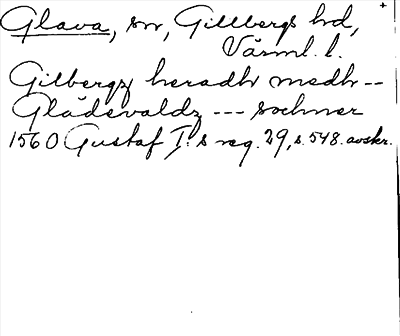 Glava, sn, Gillbergs hd,
Värml. l.
Gilbergz heradh medh --
Glädevaldz --- sochner
1560 Gustaf I:s reg. 29, s. 548. avskr.